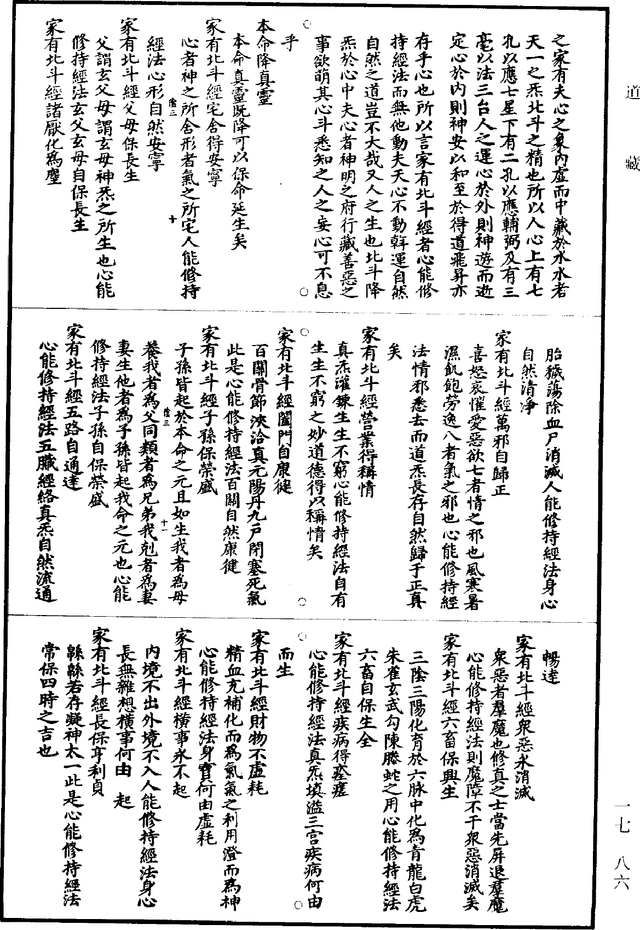 道藏
之家有夫心之象內虛而中藏於水水者
天一之炁北斗之精也所以人心上有七
孔以應七星下有二孔以應輔弼及有三
毫以法三台人之運心於外則神遊而逝
定心於內則神安以和至於得道飛昇亦
存乎心也所以言家有北斗經者心能修
持經法而無他動夫天心不動斡運自然
自然之道豈不大哉又人之生也北斗降
炁於心中夫心者神明之府行藏善惡之
事欲萌其心斗悉知之人之妄心可不息
乎
本命降真靈
本命真靈既降可以保命延生矣
家有北斗經宅舍得安寧
心者神之所舍形者氣之所宅人能修持
經法心形自然安寧
家有北斗經父母保長生
父謂玄父母謂玄母神炁之所生也心能
修持經法玄父玄母自保長生
家有北斗經諸厭化為塵
胎穢蕩除血尸消滅人能修持經法身心
自然清淨
家有北斗經萬邪自歸正
喜怒哀懼愛惡欲七者情之邪也風寒暑
濕飢飽勞逸八者氣之邪也心能修持經
法情邪悉去而道炁長存自然歸于正真
矣
家有北斗經營業得稱情
真炁灌鍊生生不窮心能修持經法自有
生生不窮之妙道德得以稱情矣
家有北斗經闔門自康健
百關骨節浹洽真元陽丹九戶閉塞死氣
此是心能修持經法百關自然康健
家有北斗經子孫保榮盛
子孫皆起於本命之元且如生我者為母
養我者為父同類者為兄弟我剋者為妻
妻生他者為子孫皆起我命之元也心能
修持經法子孫自保榮盛
家有北斗經五路自通達
心能修持經法五臟經絡真炁自然流通
暢達
家有北斗經眾惡永消滅
眾惡者羣魔也修真之士當先屏退羣魔
心能修持經法則魔障不干眾惡消滅矣
家有北斗經六畜保興生
三陰三陽化育於六脈中化為青龍白虎
朱雀玄武勾陳螣蛇之用心能修持經法
六畜自保生全
家有北斗經疾病得痊瘥
心能修持經法真炁填溢三宮疾病何由
而生
家有北斗經財物不虛耗
精血充補化而為氣氣之利用澄而為神
心能修持經法身寶何由虛耗
家有北斗經橫事永不起
內境不出外境不入人能修持經法身心
長無雜想橫事何由 起
家有北斗經長保亨利貞
緜緜若存凝神太一此是心能修持經法
常保四時之吉也
一七 八六